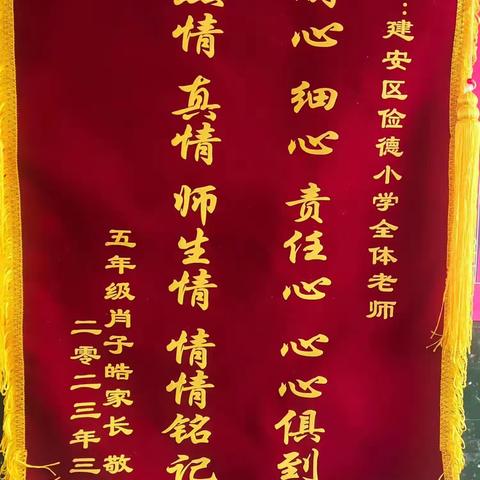 建安区俭德小学全体老师
心 细心 责任心 心心俱到
情 真情 师生情 情情铭记
五年级肖子皓家长 敬
二零二三年三